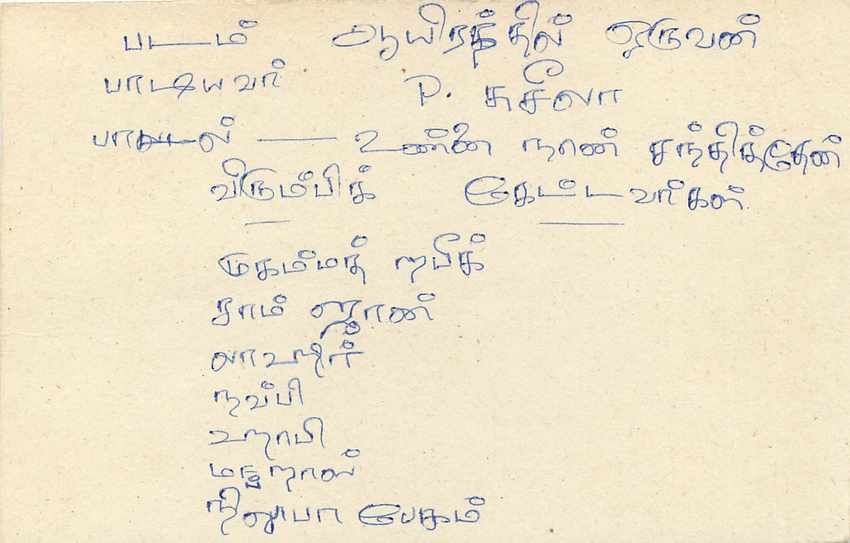 படம் ஆயிரத்தில் ஒருவன்
பாடியவர் P. சுசீலா
பாடல் — உன்னை நான் சந்தித்தேன்
விரும்பிக் கேட்டவர்கள்
முகம்மத் றபீக்
ராம் ஜான்
நவ்பி
உறாபி
நிலூபா பேகம்